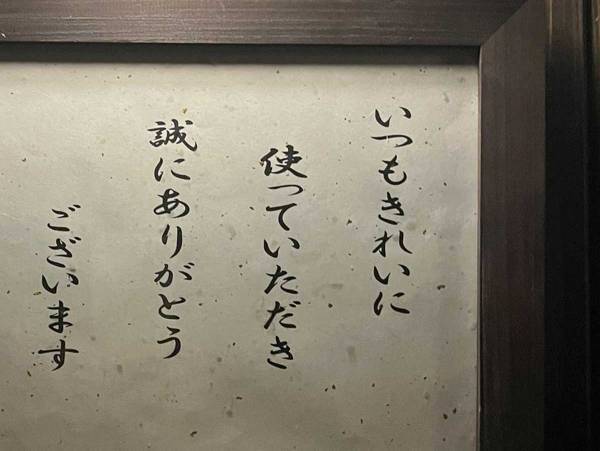 いつもきれいに
使っていただき
誠にありがとう
ございます